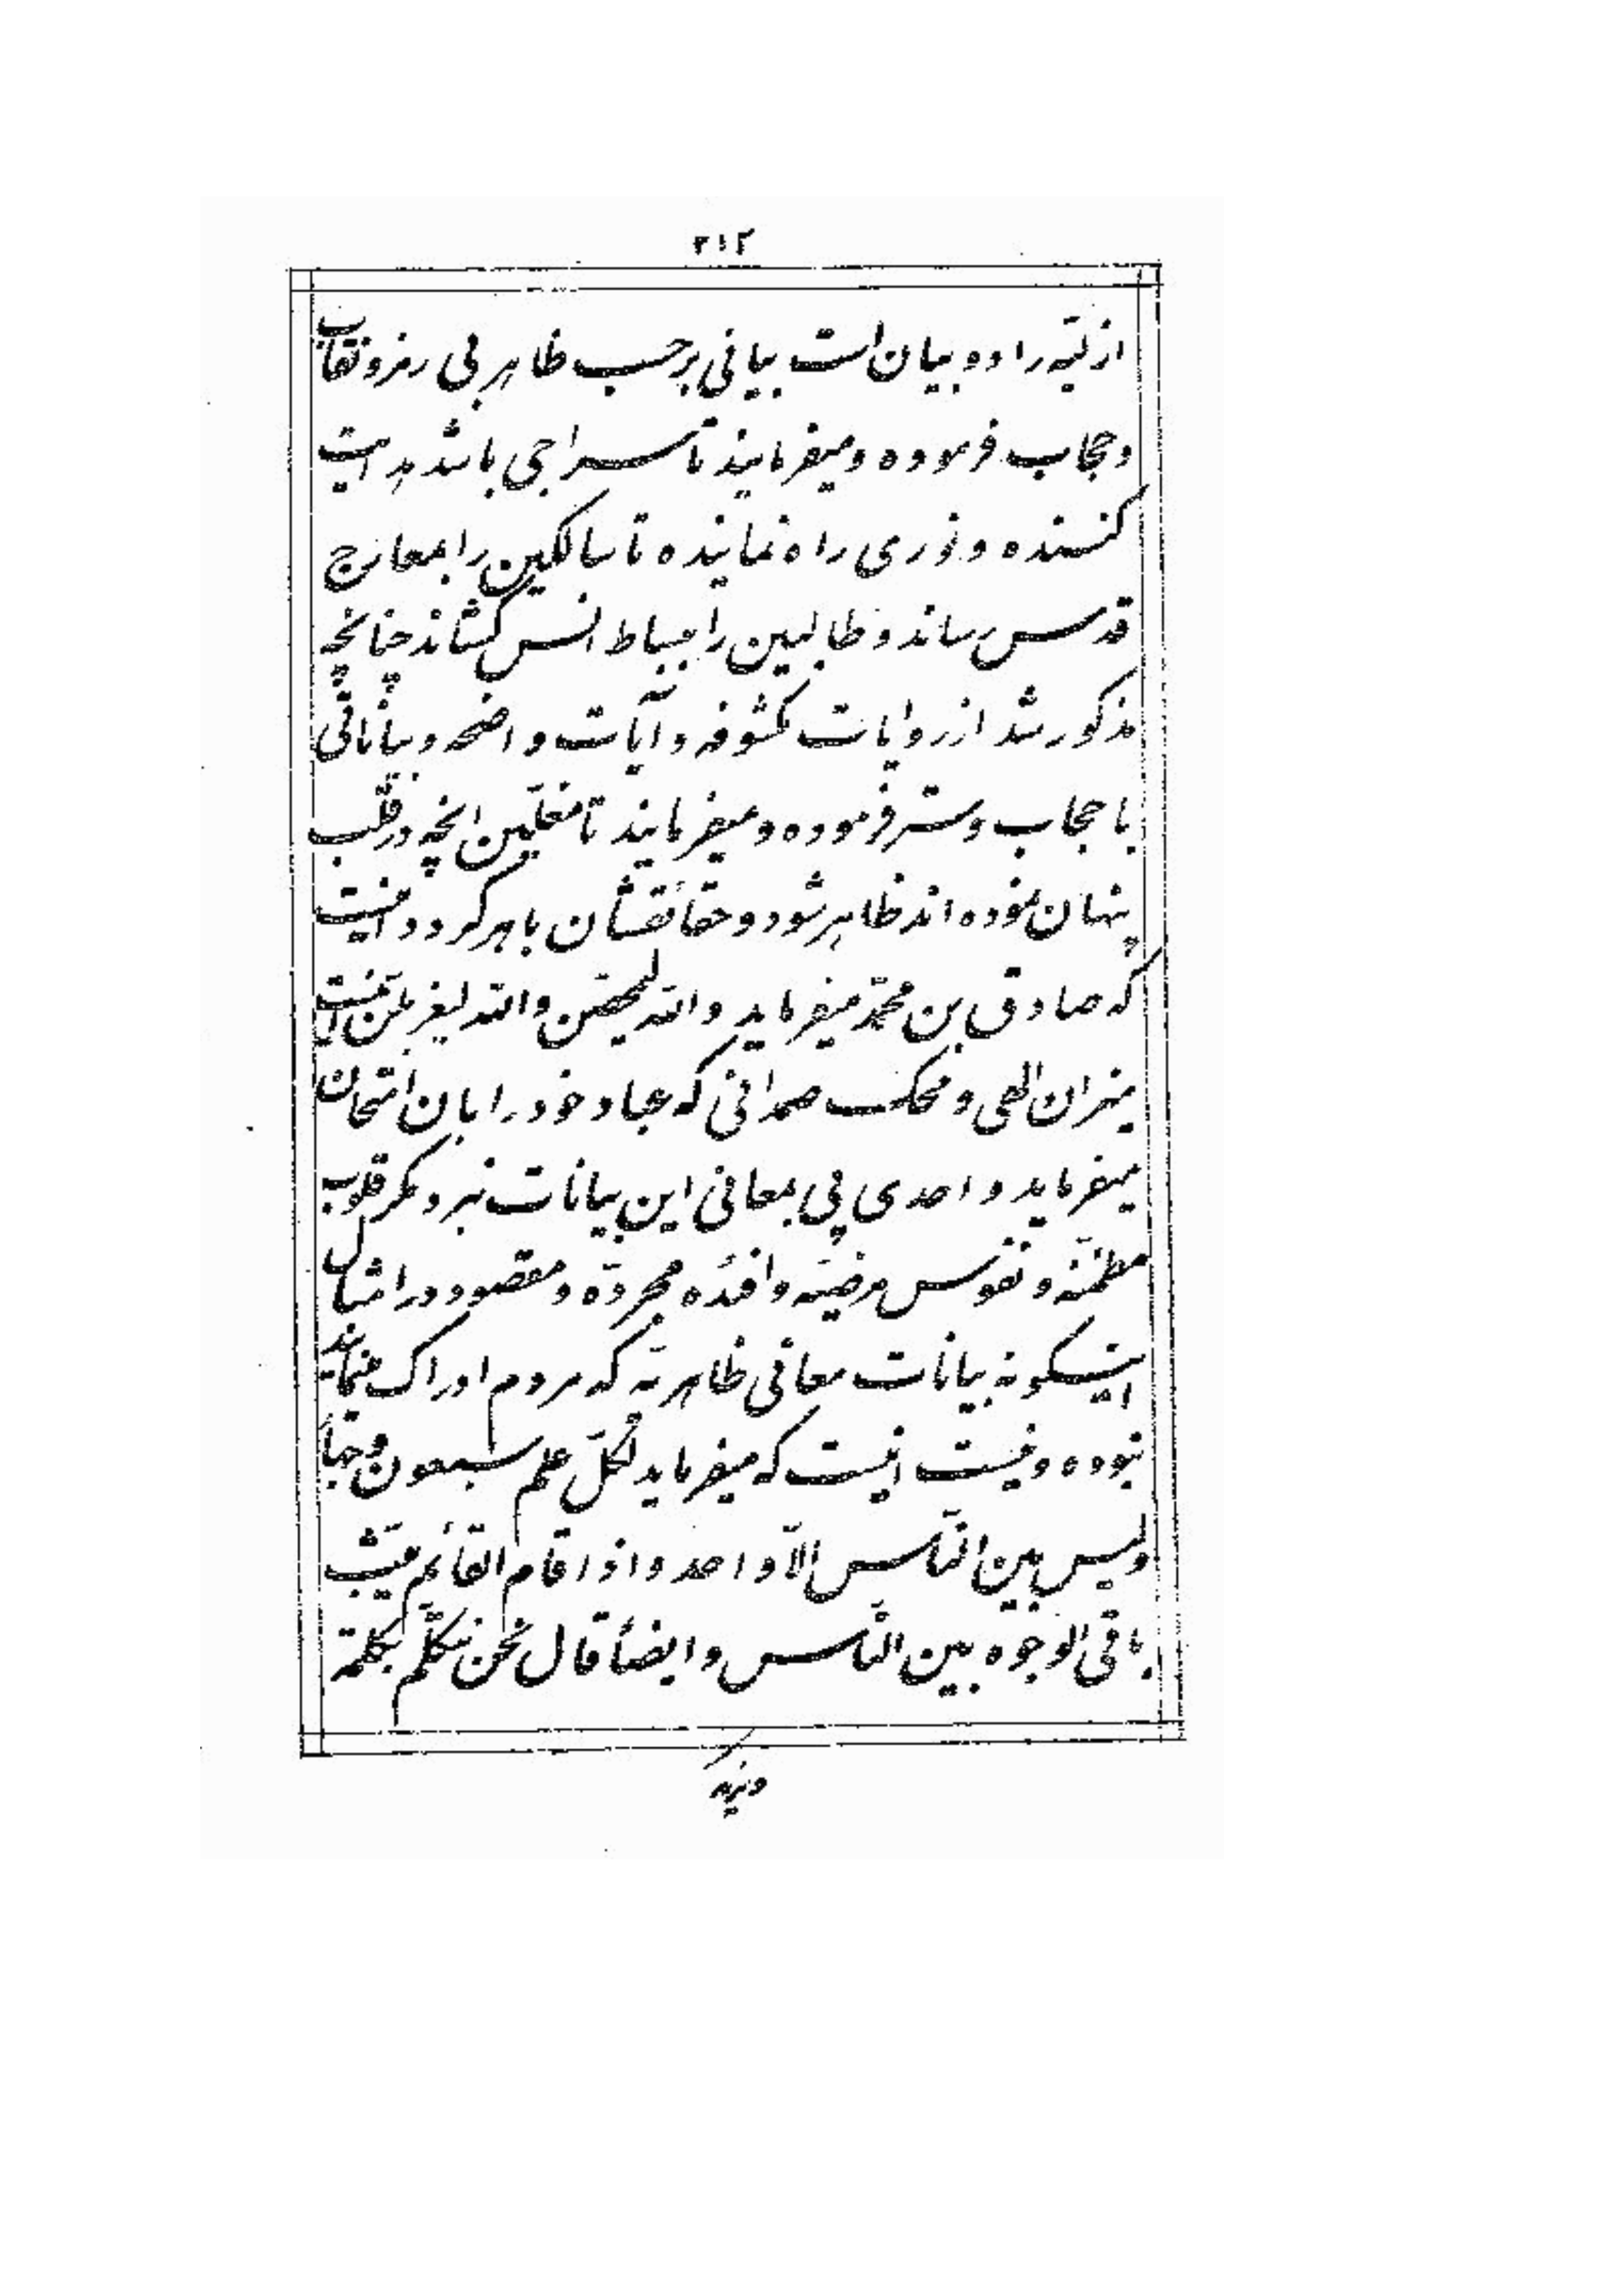 ٢١٢
ازلیّه را دو بیان است بیانی برحسب ظاهر بی رمز و نقاب
و حجاب فرموده و میفرمایند تا سراجی باشد هدایت
کننده و نوری راه نماینده تا سالکین را بمعارج
قدس رساند و طالبین را ببساط انس کشاند چنانچه
مذکور شد از روایات مکشوفه و آیات واضحه و بیاناتی
با حجاب و ستر فرموده و میفرمایند تا مغلّین آنچه در قلب
پنهان نموده‌اند ظاهر شود و حقائقشان باهر گردد اینست
که صادق بن محمّد میفرماید واللّه لیمحّصنّ واللّه لیغربلنّ اینست
میزان الهی و محک صمدانی که عباد خود را بآن امتحان
میفرماید و احدی پی بمعانی این بیانات نبرد مگر قلوب
مطمئنّه و نفوس مرضیّه و افئده مجرّده و مقصود در امثال
اینگونه بیانات معانی ظاهریّه که مردم ادراک مینمایند
نبوده و نیست اینست که میفرماید لکلّ علم سبعون وجهاً
و لیس بین النّاس الّا واحد و اذا قام القائم یبثّ
باقی الوجوه بین النّاس و ایضاً قال نحن نتکلّم بکلمة
و نرید